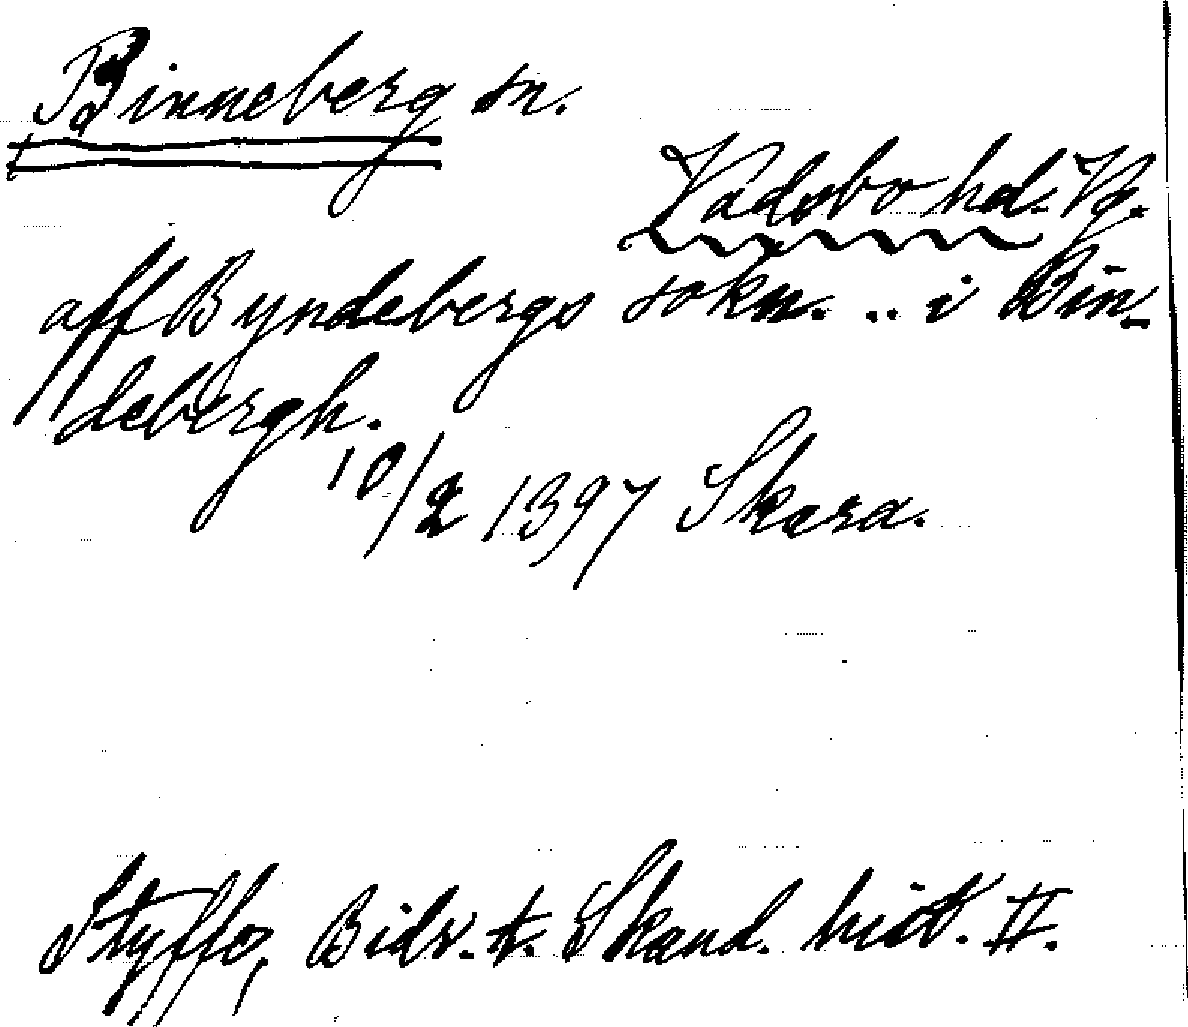 Binneberg sn.
Vadsbo hd. Vg.
aff Byndebergs sokn. .. i Bin-
debergh.
10/2 1397 Skara.
Styffe, Bidr. t. Skand. hist. II.